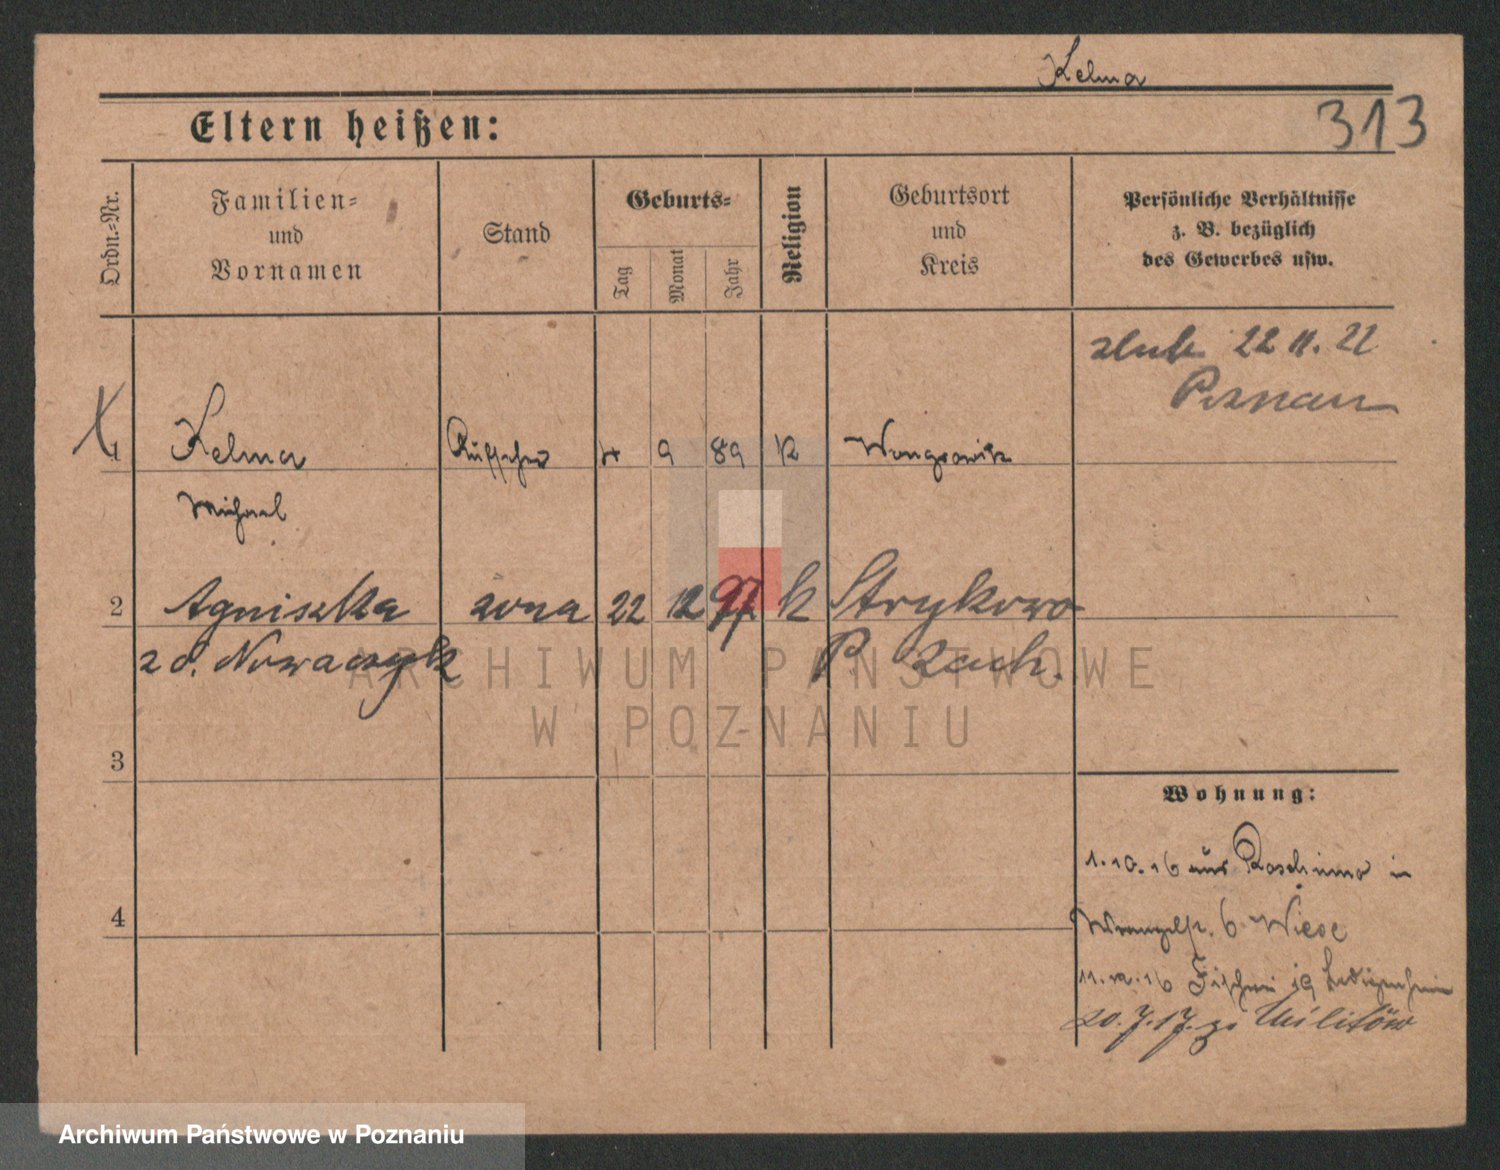 Kelma
313
Eltern heißen:
Ordn.-Nr.
Familien-
und
Vornamen
Stand
Geburts-
Tag
Monat
Jahr
Religion
Geburtsort
und
Kreis
Persönliche Verhältnisse
z. B. bezüglich
des Gewerbes usw.
ślub 22 11. 21
Poznań
1 Kelma 4 9 89 K Wongrowitz
Michael
2 Agnieszka żona 22 12 97 k Strykowo
z d. Nowaczyk P. Zach.
3
4
Wohnung:
1.10.16 aus in
Wrangelstr. 6 Wiese
19
20.7.17. zu Militär
ARCHIWUM PAŃSTWOWE
W POZNANIU
Archiwum Państwowe w Poznaniu